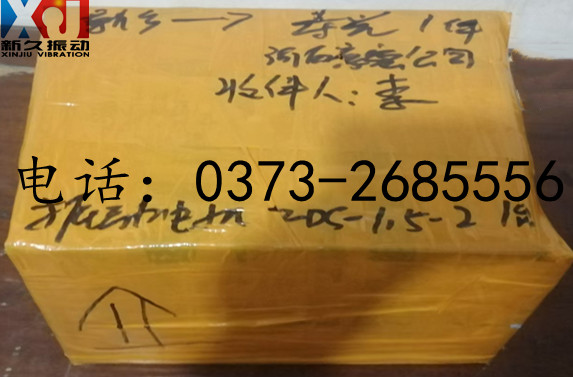 XJ
新久振动
XINJIU VIBRATION
新乡 → 1件
公司
收件人:李
电话：0373-2685556
振动电机 ZDS-1.5-2 1台